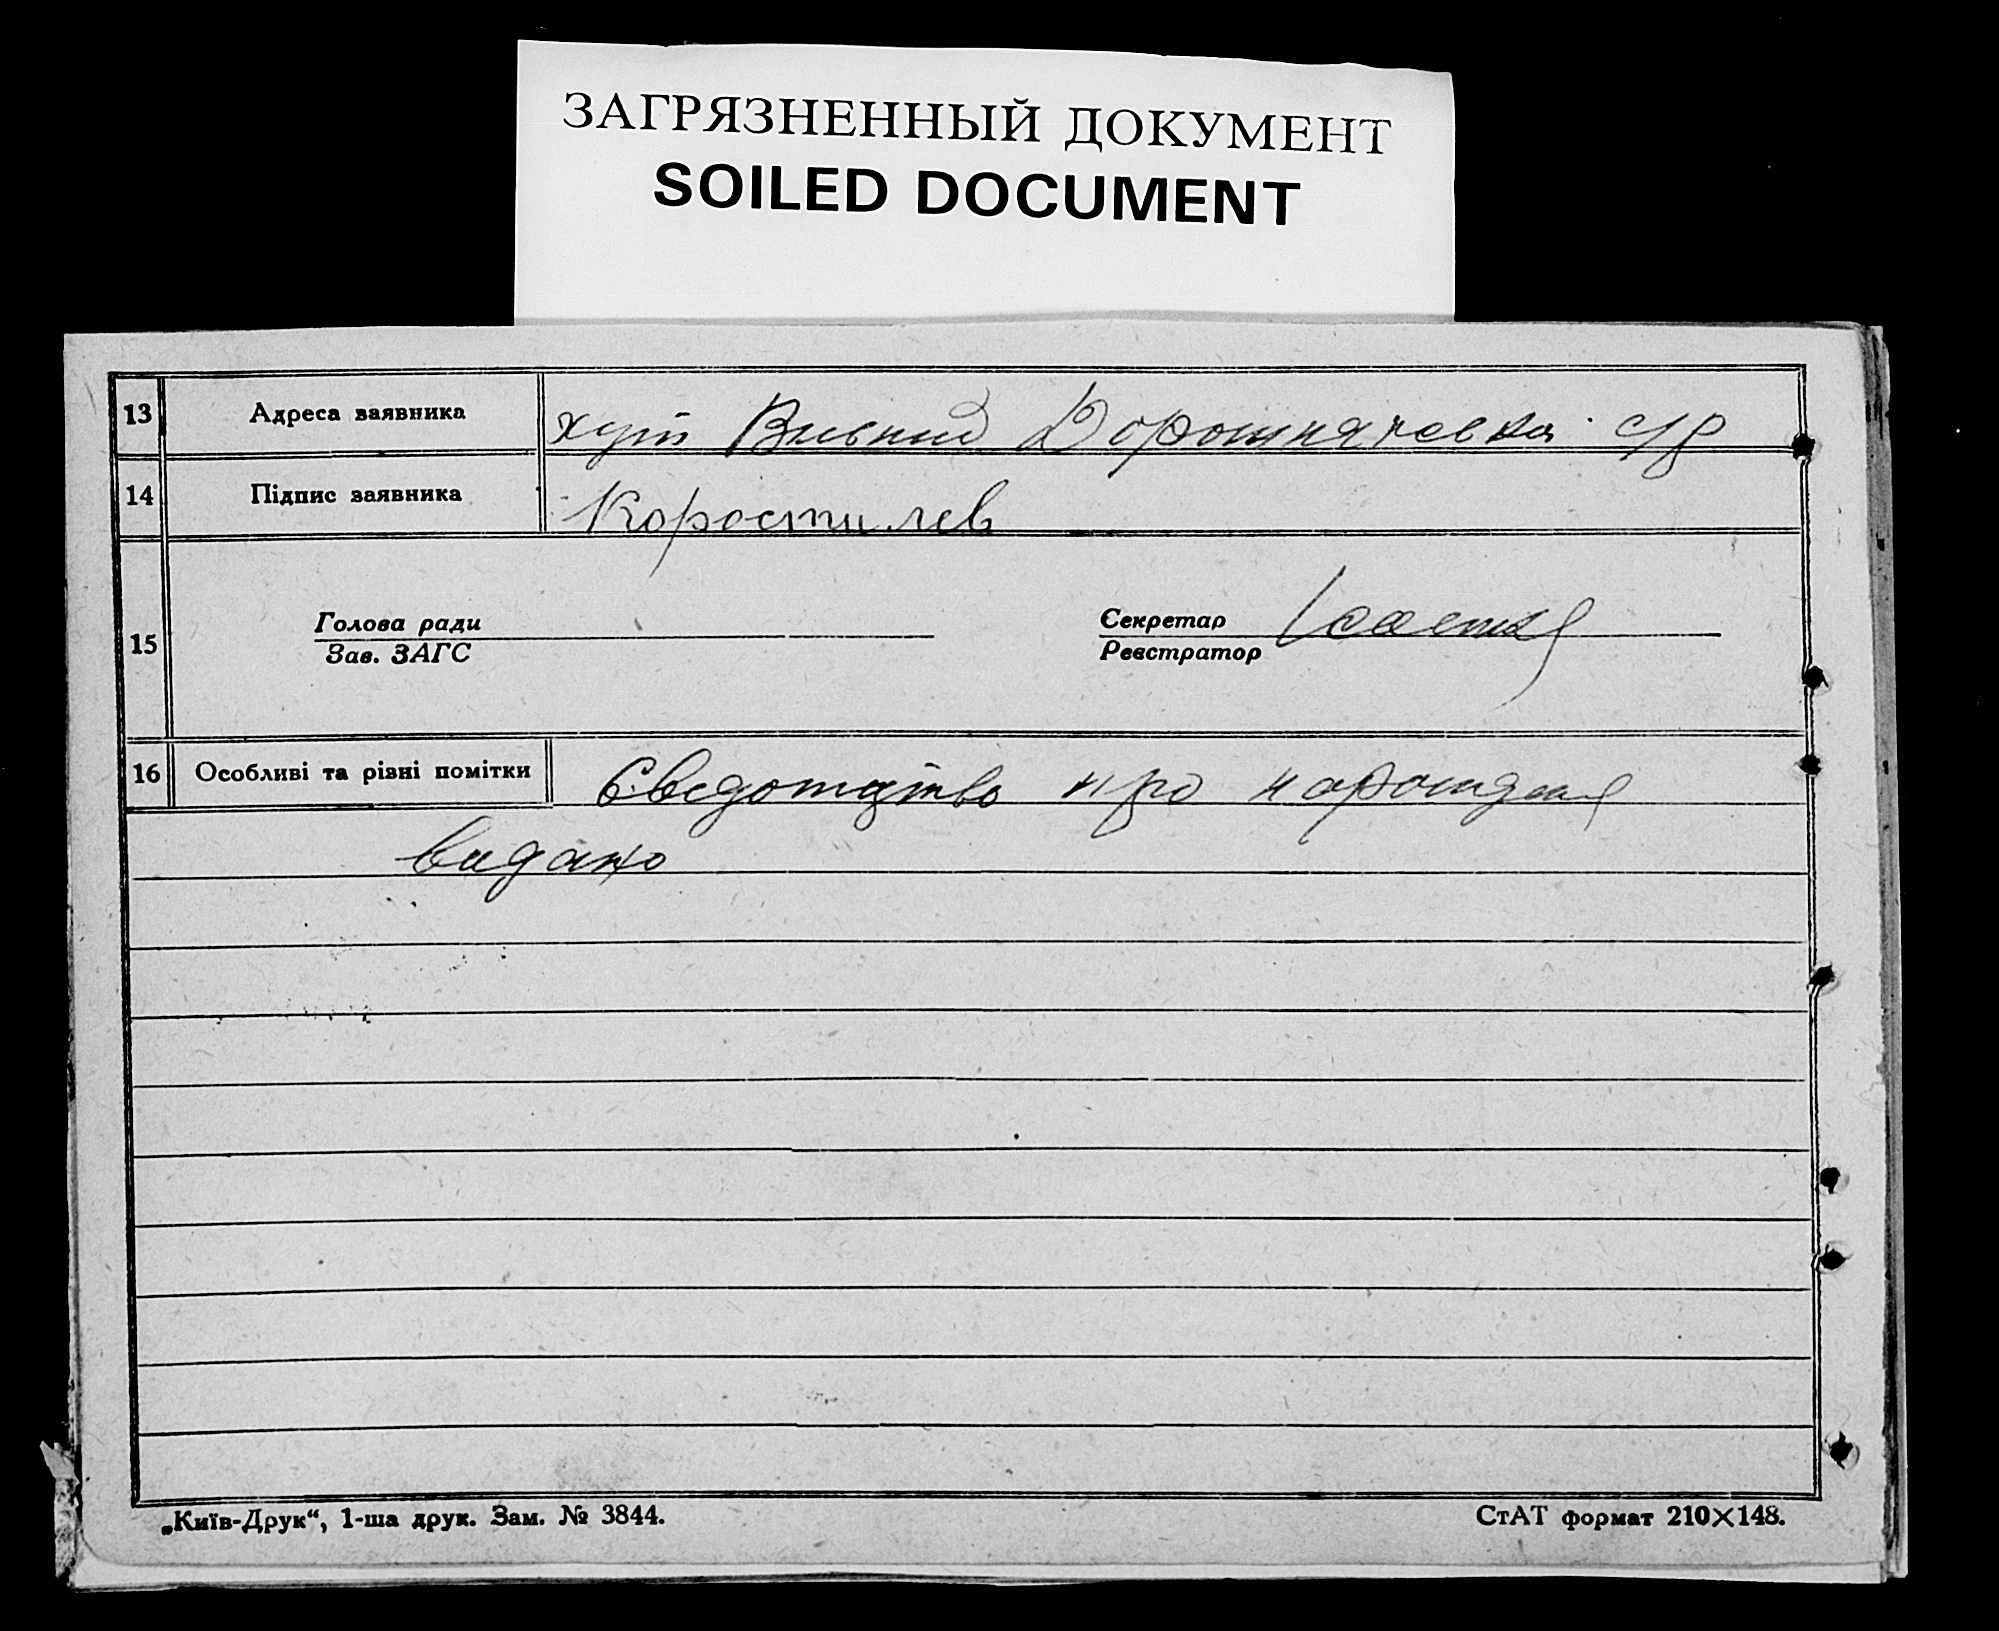 ЗАГРЯЗНЕННЫЙ ДОКУМЕНТ
SOILED DOCUMENT
13 Адреса заявника хут с/р
14 Підпис заявника Коростилев
Голова ради Секретар
15
Зав. ЗАГС Реєстратор
16 Особливі та різні помітки про
видано
„Київ-Друк“, 1-ша друк. Зам. № 3844. СтАТ формат 210×148.